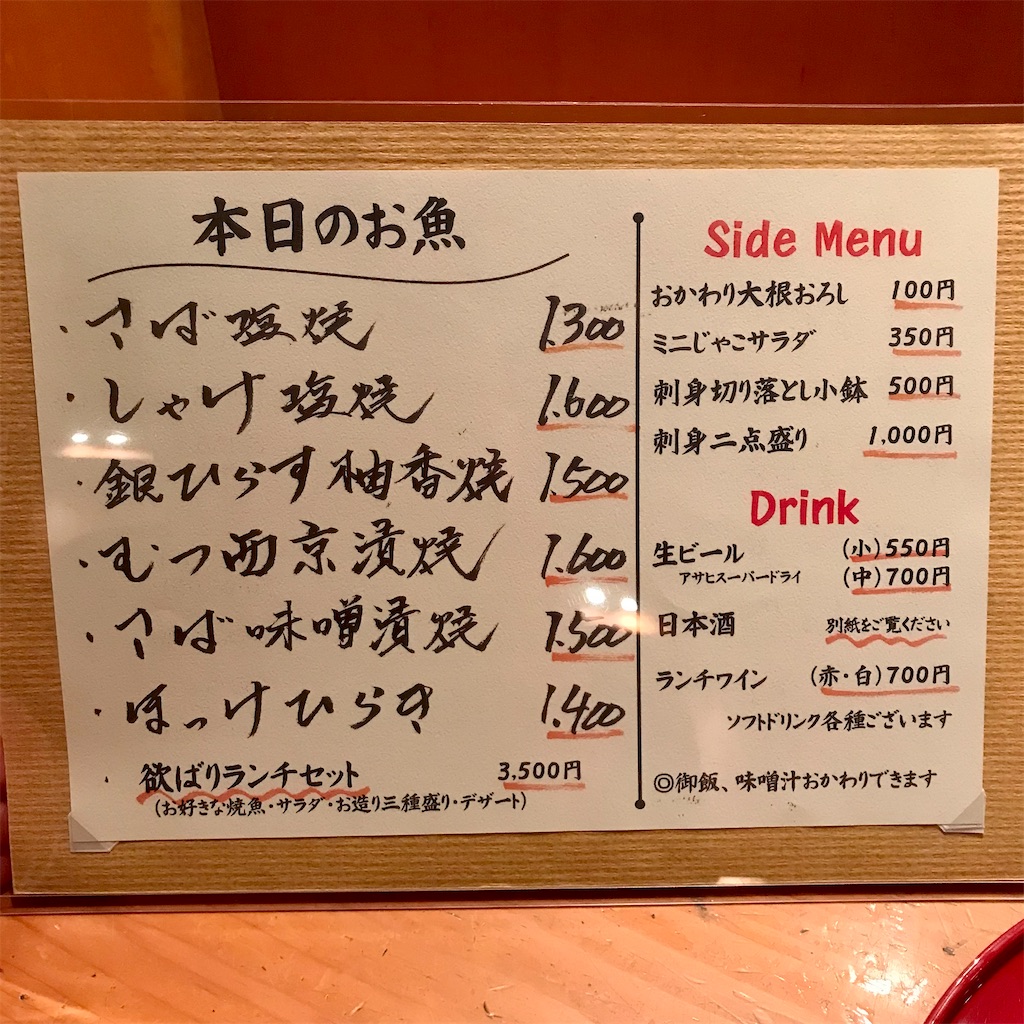 本日のお魚
・さば塩焼 1.300
・しゃけ塩焼 1.600
・銀ひらす柚香焼 1.500
・むつ西京漬焼 1.600
・さば味噌漬焼 1.500
・ほっけひらき 1.400
・欲ばりランチセット 3,500円
(お好きな焼魚・サラダ・お造り三種盛り・デザート)
Side Menu
おかわり大根おろし 100円
ミニじゃこサラダ 350円
刺身切り落とし小鉢 500円
刺身二点盛り 1,000円
Drink
生ビール (小)550円
アサヒスーパードライ (中)700円
日本酒 別紙をご覧ください
ランチワイン (赤・白)700円
ソフトドリンク各種ございます
◎御飯、味噌汁おかわりできます